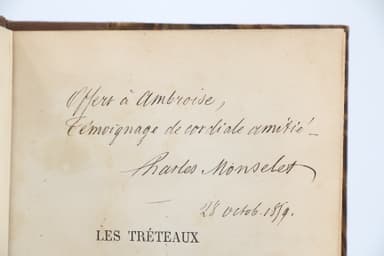 Offert à Ambroise,
témoignage de cordiale amitié_
Charles Monselet
28 octob. 1859.
LES TRÉTEAUX